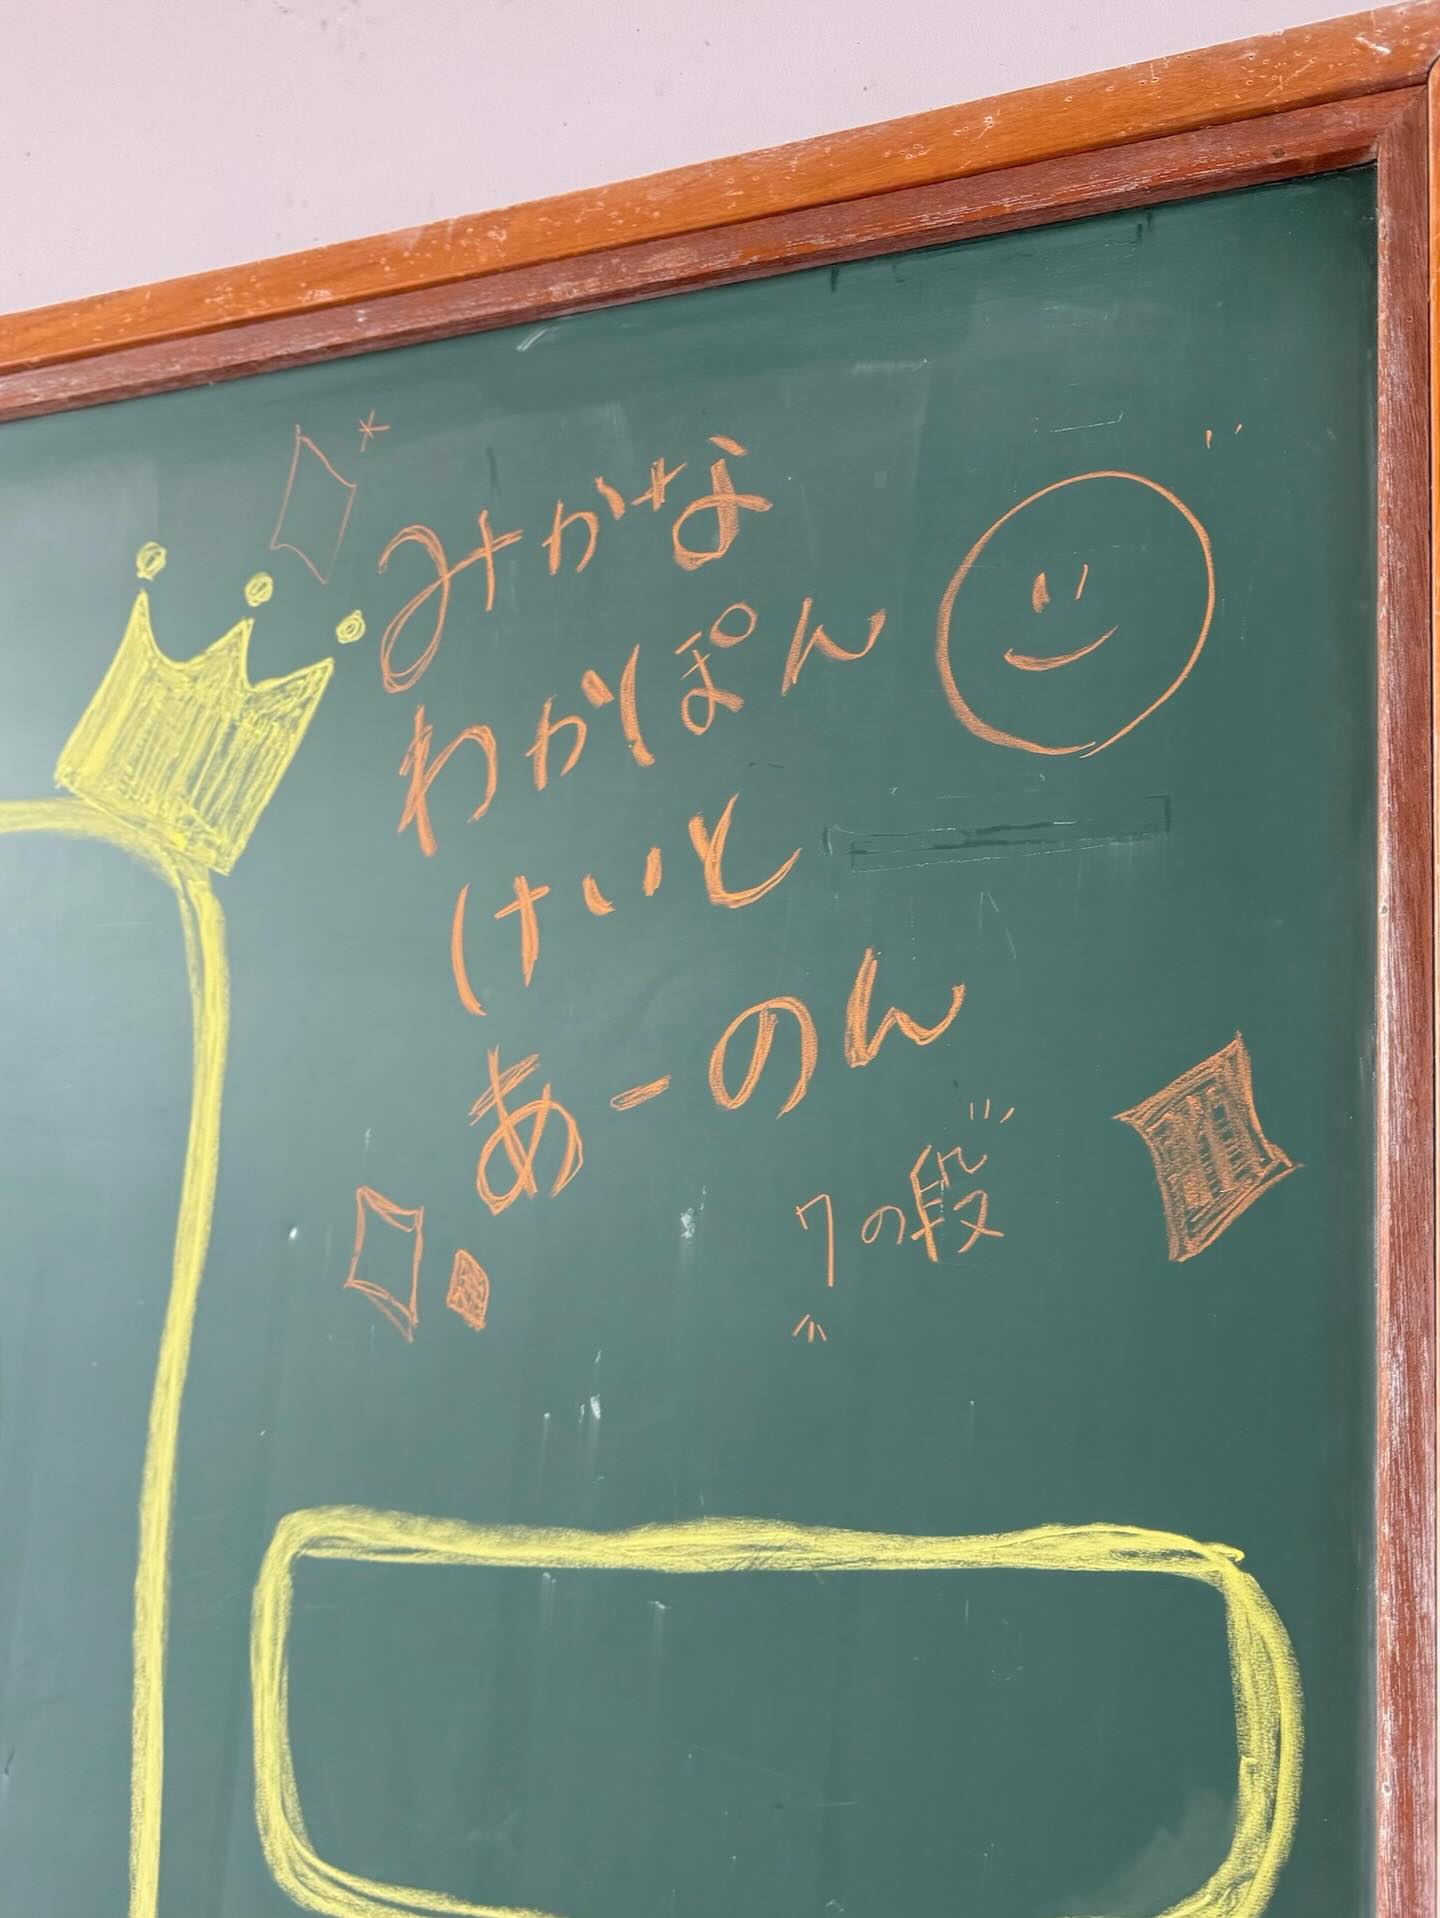 みかな
わかぽん
けいと
あーのん
7の段